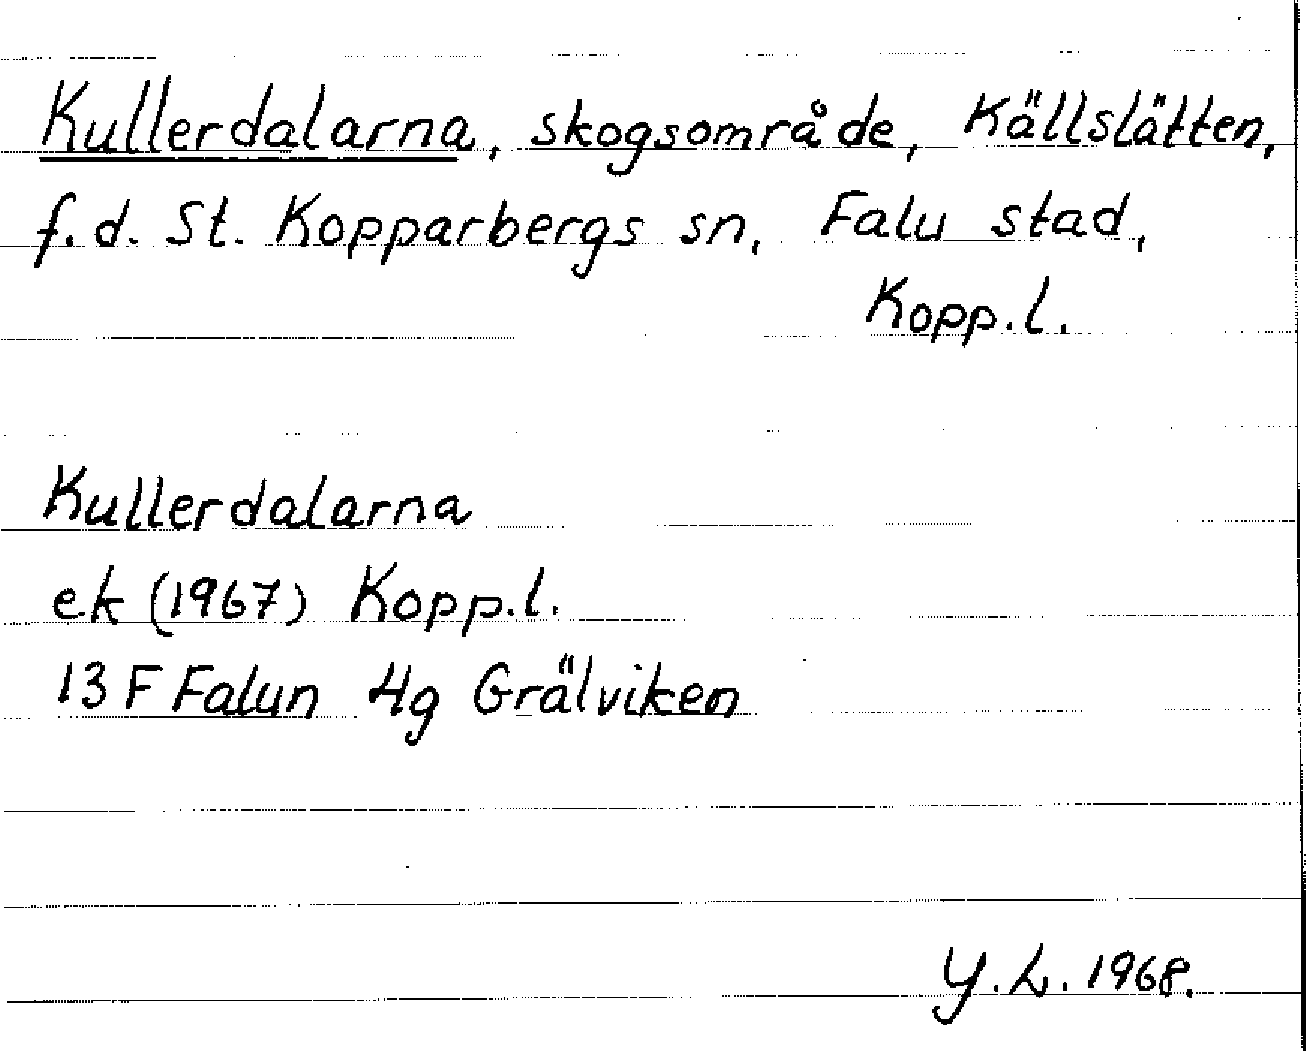 Kullerdalarna, skogsområde, Källslätten,
f.d. St. Kopparbergs sn, Falu stad,
Kopp.l.
Kullerdalarna
ek (1967) Kopp.l.
13 F Falun 4g Grälviken
Y.L. 1968.